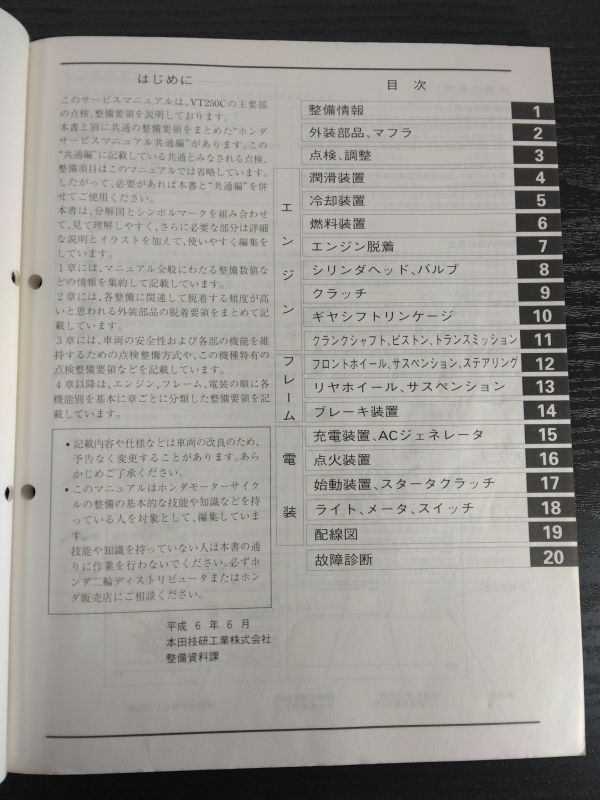 はじめに
このサービスマニュアルは、VT250Cの主要部
の点検、整備要領を説明しております。
本書と別に共通の整備要領をまとめた“ホンダ
サービスマニュアル共通編”があります。この
“共通編”に記載している共通とみなされる点検、
整備項目はこのマニュアルでは省略しています。
したがって、必要があれば本書と“共通編”を併
せてご使用ください。
本書は、分解図とシンボルマークを組み合わせ
て、見て理解しやすく、さらに必要な部分は詳細
な説明とイラストを加えて、使いやすく編集を
しています。
1章には、マニュアル全般にわたる整備数値な
どの情報を集約して記載しています。
2章には、各整備に関連して脱着する頻度が高
いと思われる外装部品の脱着要領をまとめて記
載しています。
3章には、車両の安全性および各部の機能を維
持するための点検整備方式や、この機種特有の
点検整備要領などを記載しています。
4章以降は、エンジン、フレーム、電装の順に各
機能別を基本に章ごとに分類した整備要領を記
載しています。
•記載内容や仕様などは車両の改良のため、
予告なく変更することがあります。あら
かじめご了承ください。
•このマニュアルはホンダモーターサイク
ルの整備の基本的な技能や知識などを持
っている人を対象として、編集していま
す。
技能や知識を持っていない人は本書の通
りに作業を行わないでください。必ずホ
ンダ二輪ディストリビュータまたはホン
ダ販売店にご相談ください。
平成6年6月
本田技研工業株式会社
整備資料課
目次
整備情報 1
外装部品、マフラ 2
点検、調整 3
エンジン
潤滑装置 4
冷却装置 5
燃料装置 6
エンジン脱着 7
シリンダヘッド、バルブ 8
クラッチ 9
ギヤシフトリンケージ 10
クランクシャフト、ピストン、トランスミッション 11
フレーム
フロントホイール、サスペンション、ステアリング 12
リヤホイール、サスペンション 13
ブレーキ装置 14
電装
充電装置、ACジェネレータ 15
点火装置 16
始動装置、スタータクラッチ 17
ライト、メータ、スイッチ 18
配線図 19
故障診断 20